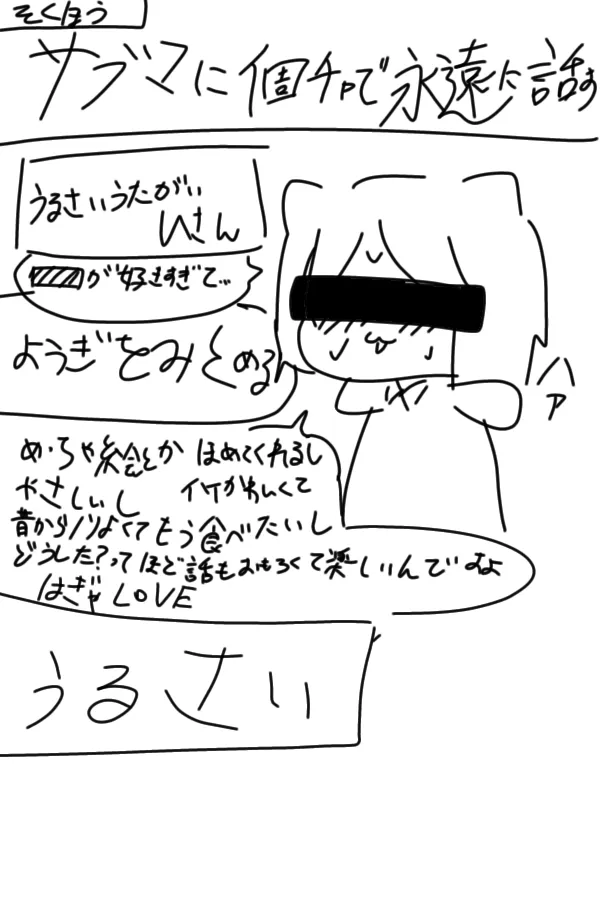 そくほう
サブマに個チャで永遠に話す
うるさいうたがい
Wさん
が好きすぎて…
ようぎをみとめる
ハァ
めちゃ絵とか ほめてくれるし
やさしいし イケかわいくて
昔からノリよくてもう食べたいし
どうした?ってほど話もおもろくて楽しいんですよ
はぎゃ LOVE
うるさい